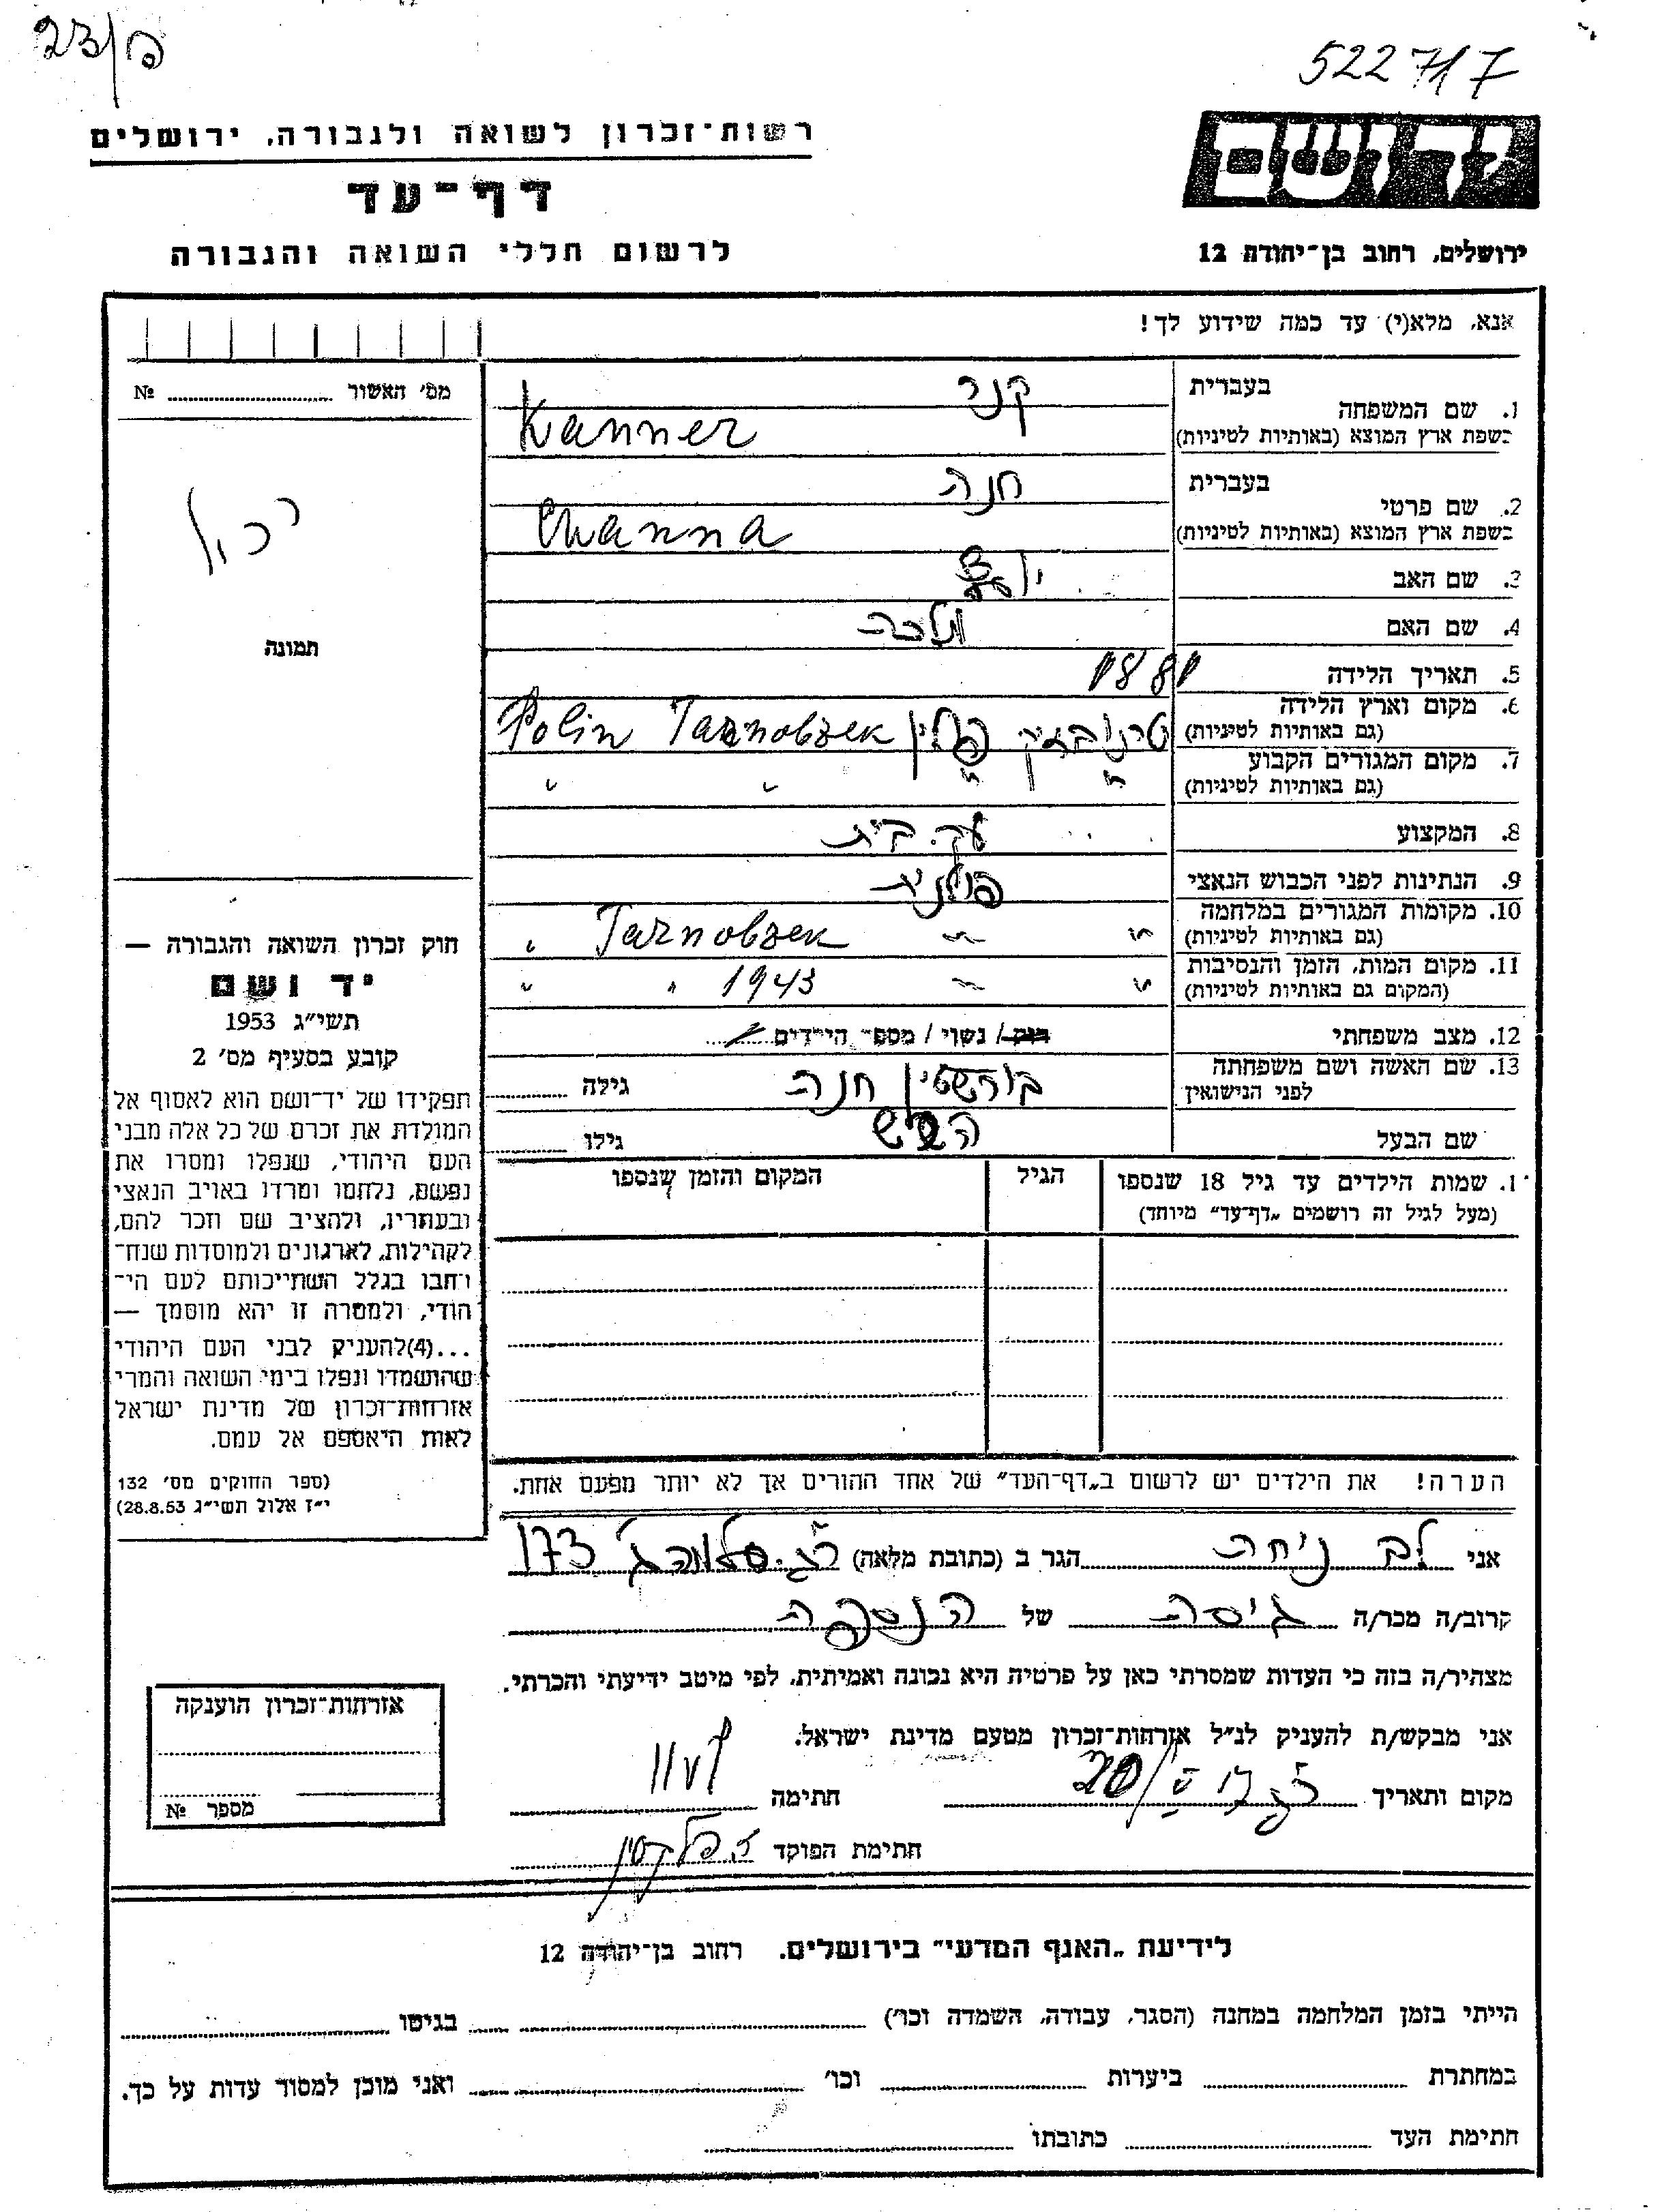 23/פ
522717
יד ושם
רשות־זכרון לשואה ולגבורה, ירושלים
דף־עד
לרשום חללי השואה והגבורה
ירושלים, רחוב בן־יהודה 12
אנא, מלא(י) עד כמה שידוע לך!
מס׳ האשור № 
1. שם המשפחה
בעברית קנר
בשפת ארץ המוצא (באותיות לטיניות) Kanner
2. שם פרטי
בעברית חנה
בשפת ארץ המוצא (באותיות לטיניות) Channa
3. שם האב
4. שם האם מלכה
תמונה
5. תאריך הלידה 1881
6. מקום וארץ הלידה
(גם באותיות לטיניות) טרנובזק פולין Tarnobzek Polin
7. מקום המגורים הקבוע
(גם באותיות לטיניות) " " " "
8. המקצוע עק. בית
9. הנתינות לפני הכבוש הנאצי פולנית
10. מקומות המגורים במלחמה
(גם באותיות לטיניות) " " Tarnobzek "
11. מקום המות, הזמן והנסיבות
(המקום גם באותיות לטיניות) " " 1943 " "
12. מצב משפחתי רווק / נשוי / מספר הילדים
13. שם האשה ושם משפחתה
לפני הנישואין בורשטין חנה גילה
שם הבעל הירש גילו
חוק זכרון השואה והגבורה —
יד ושם
תשי״ג 1953
קובע בסעיף מס׳ 2
תפקידו של יד־ושם הוא לאסוף אל
המולדת את זכרם של כל אלה מבני
העם היהודי, שנפלו ומסרו את
נפשם, נלחמו ומרדו באויב הנאצי
ובעוזריו, ולהציב שם וזכר להם,
לקהילות, לארגונים ולמוסדות שנח־
רבו בגלל השתייכותם לעם הי־
הודי, ולמטרה זו יהא מוסמך —
...(4)להעניק לבני העם היהודי
שהושמדו ונפלו בימי השואה והמרי
אזרחות־זכרון של מדינת ישראל
לאות היאספם אל עמם.
(ספר החוקים מס׳ 132
י״ז אלול תשי״ג 28.8.53)
1. שמות הילדים עד גיל 18 שנספו
(מעל לגיל זה רושמים „דף־עד״ מיוחד)
הגיל
המקום והזמן שנספו
הערה! את הילדים יש לרשום ב„דף־העד״ של אחד ההורים אך לא יותר מפעם אחת.
אני לב ניחה הגר ב (כתובת מלאה) 173
קרוב/ה מכר/ה גיסה של הנספה
מצהיר/ה בזה כי העדות שמסרתי כאן על פרטיה היא נכונה ואמיתית, לפי מיטב ידיעתי והכרתי.
אני מבקש/ת להעניק לנ״ל אזרחות־זכרון מטעם מדינת ישראל.
מקום ותאריך 20/V חתימה
חתימת הפוקד
אזרחות־זכרון הוענקה
מספר №
לידיעת „האגף המדעי״ בירושלים, רחוב בן־יהודה 12
הייתי בזמן המלחמה במחנה (הסגר, עבודה, השמדה וכו׳) בגיטו
במחתרת ביערות וכו׳ ואני מוכן למסור עדות על כך.
חתימת העד כתובתו